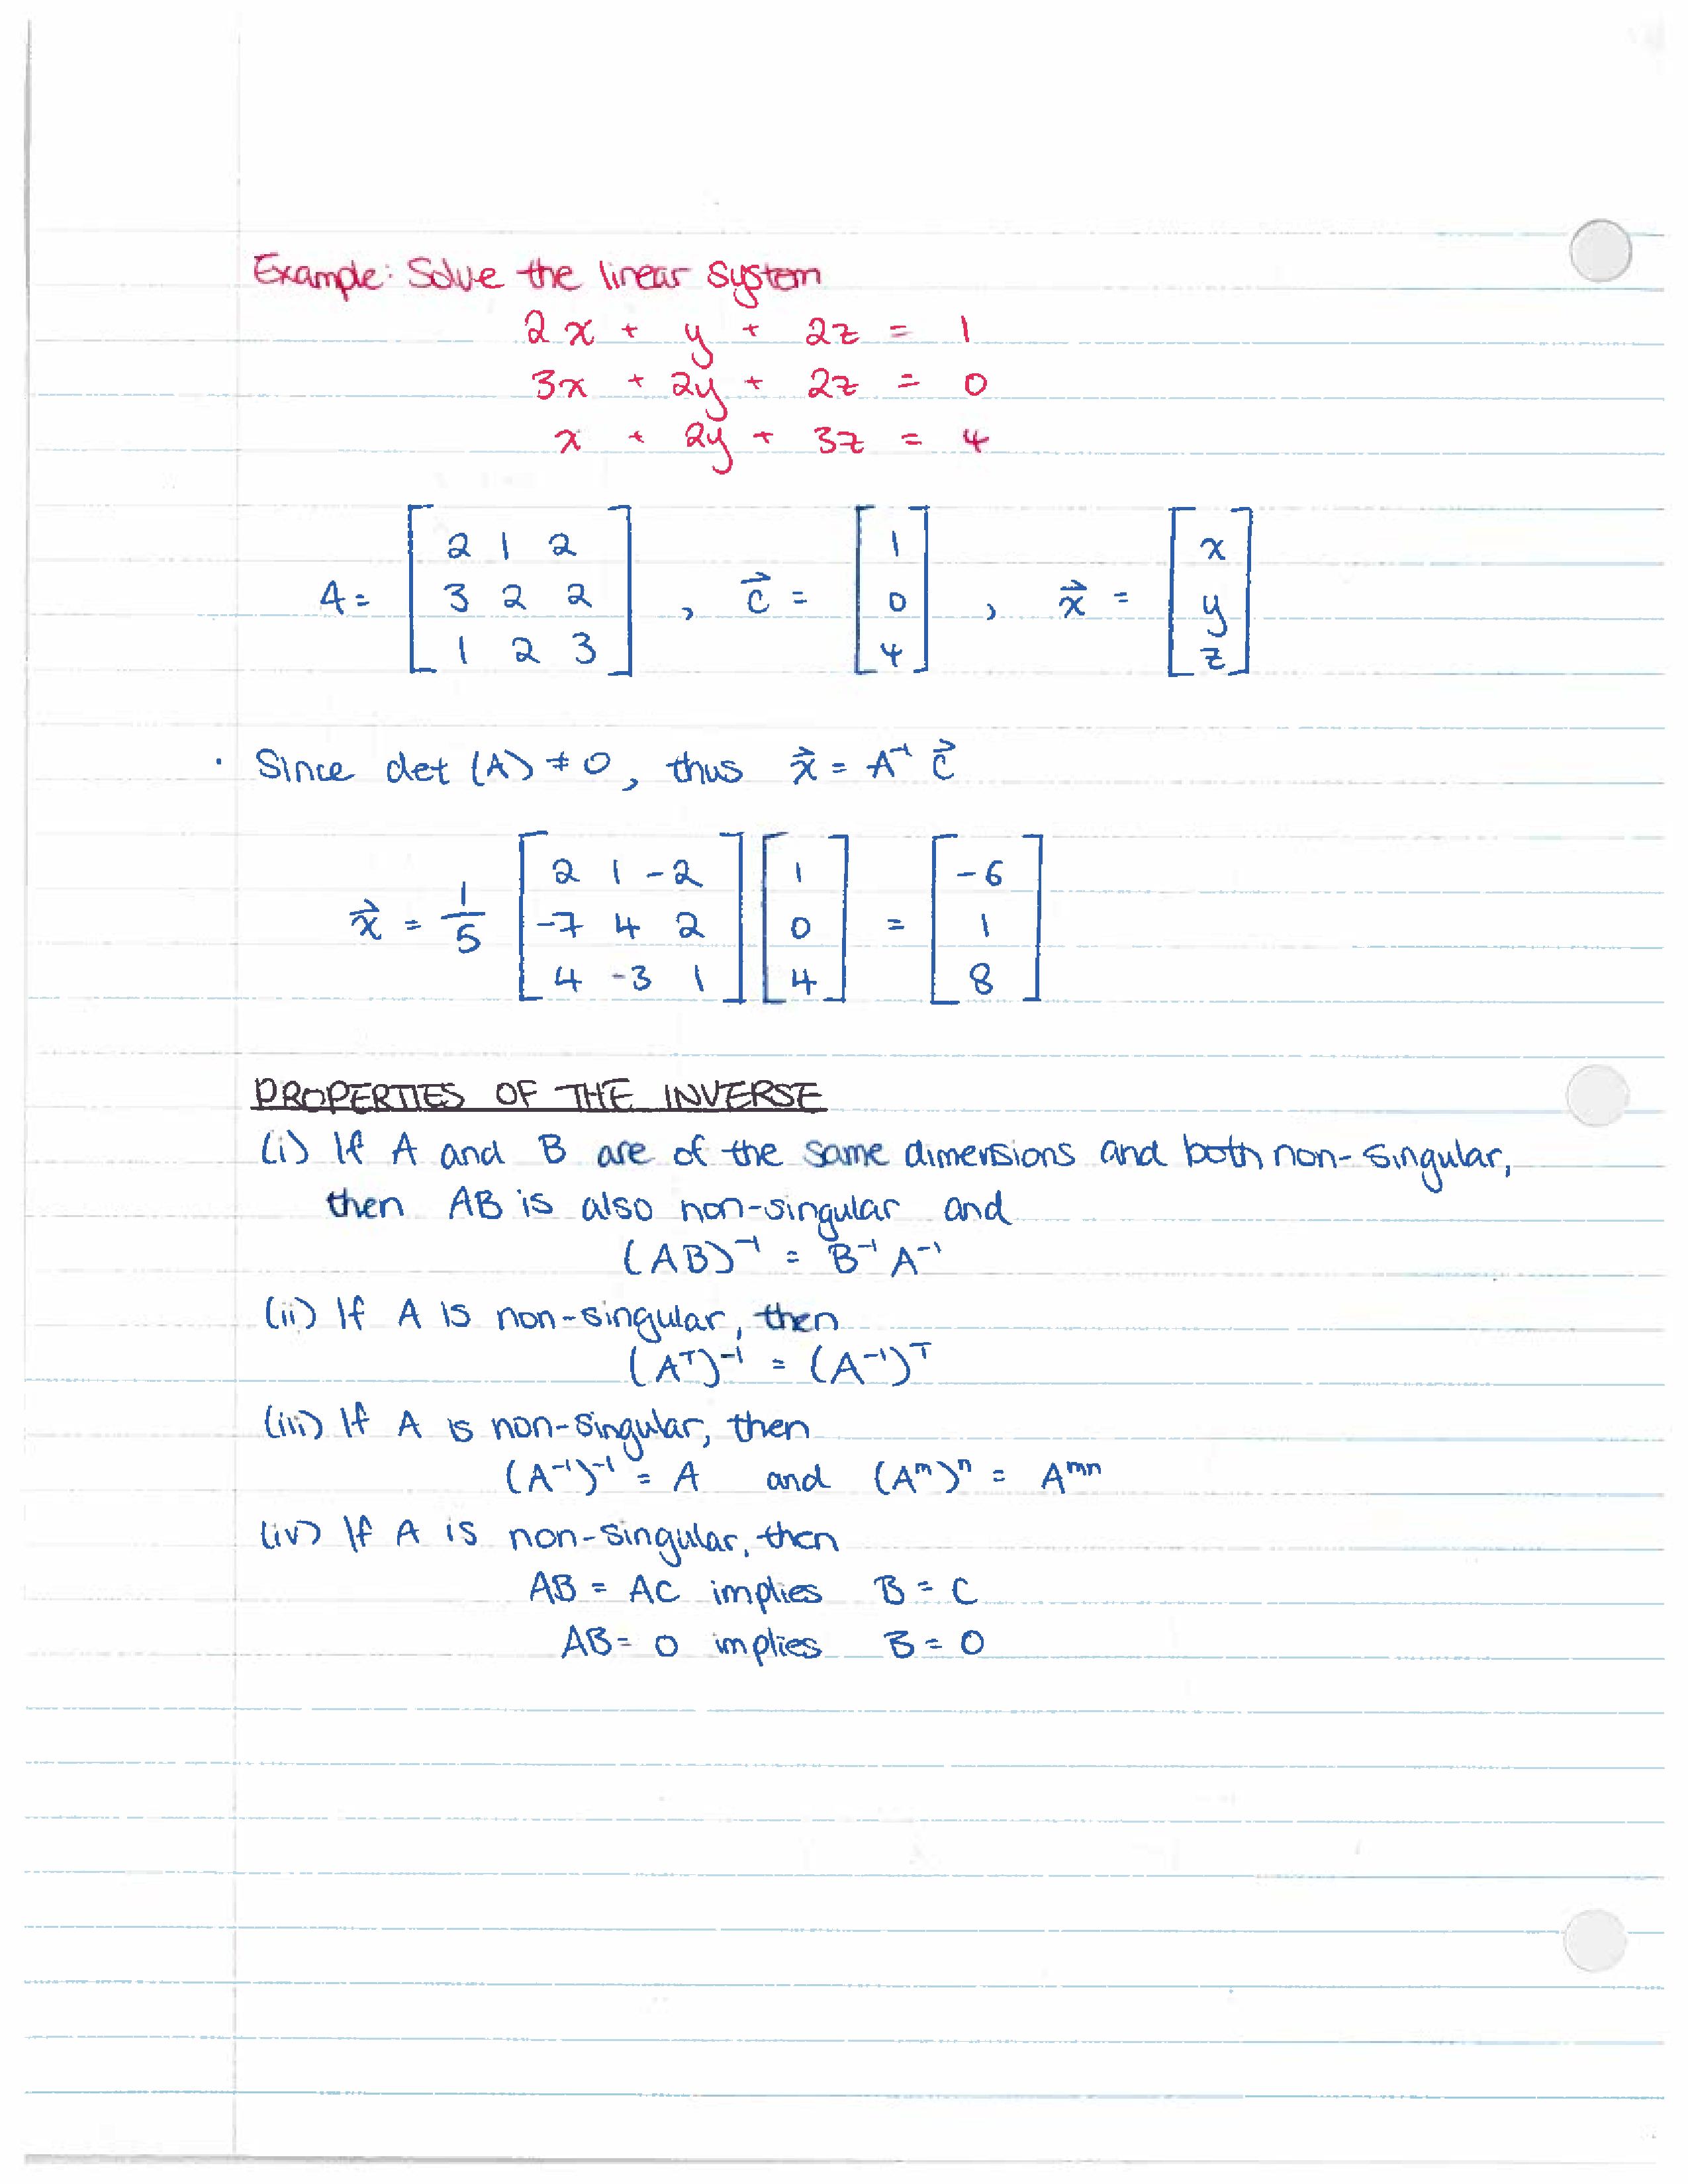 Example: Solve the linear system
2x + y + 2z = 1
3x + 2y + 2z = 0
x + 2y + 3z = 4
A = [2 1 2; 3 2 2; 1 2 3], c⃗ = [1; 0; 4], x⃗ = [x; y; z]
· Since det (A) ≠ 0, thus x⃗ = A⁻¹ c⃗
x⃗ = 1/5 [2 1 -2; -7 4 2; 4 -3 1] [1; 0; 4] = [-6; 1; 8]
PROPERTIES OF THE INVERSE
(i) If A and B are of the same dimensions and both non-singular,
then AB is also non-singular and
(AB)⁻¹ = B⁻¹ A⁻¹
(ii) If A is non-singular, then
(Aᵀ)⁻¹ = (A⁻¹)ᵀ
(iii) If A is non-singular, then
(A⁻¹)⁻¹ = A and (Aᵐ)ⁿ = Aᵐⁿ
(iv) If A is non-singular, then
AB = AC implies B = C
AB = 0 implies B = 0